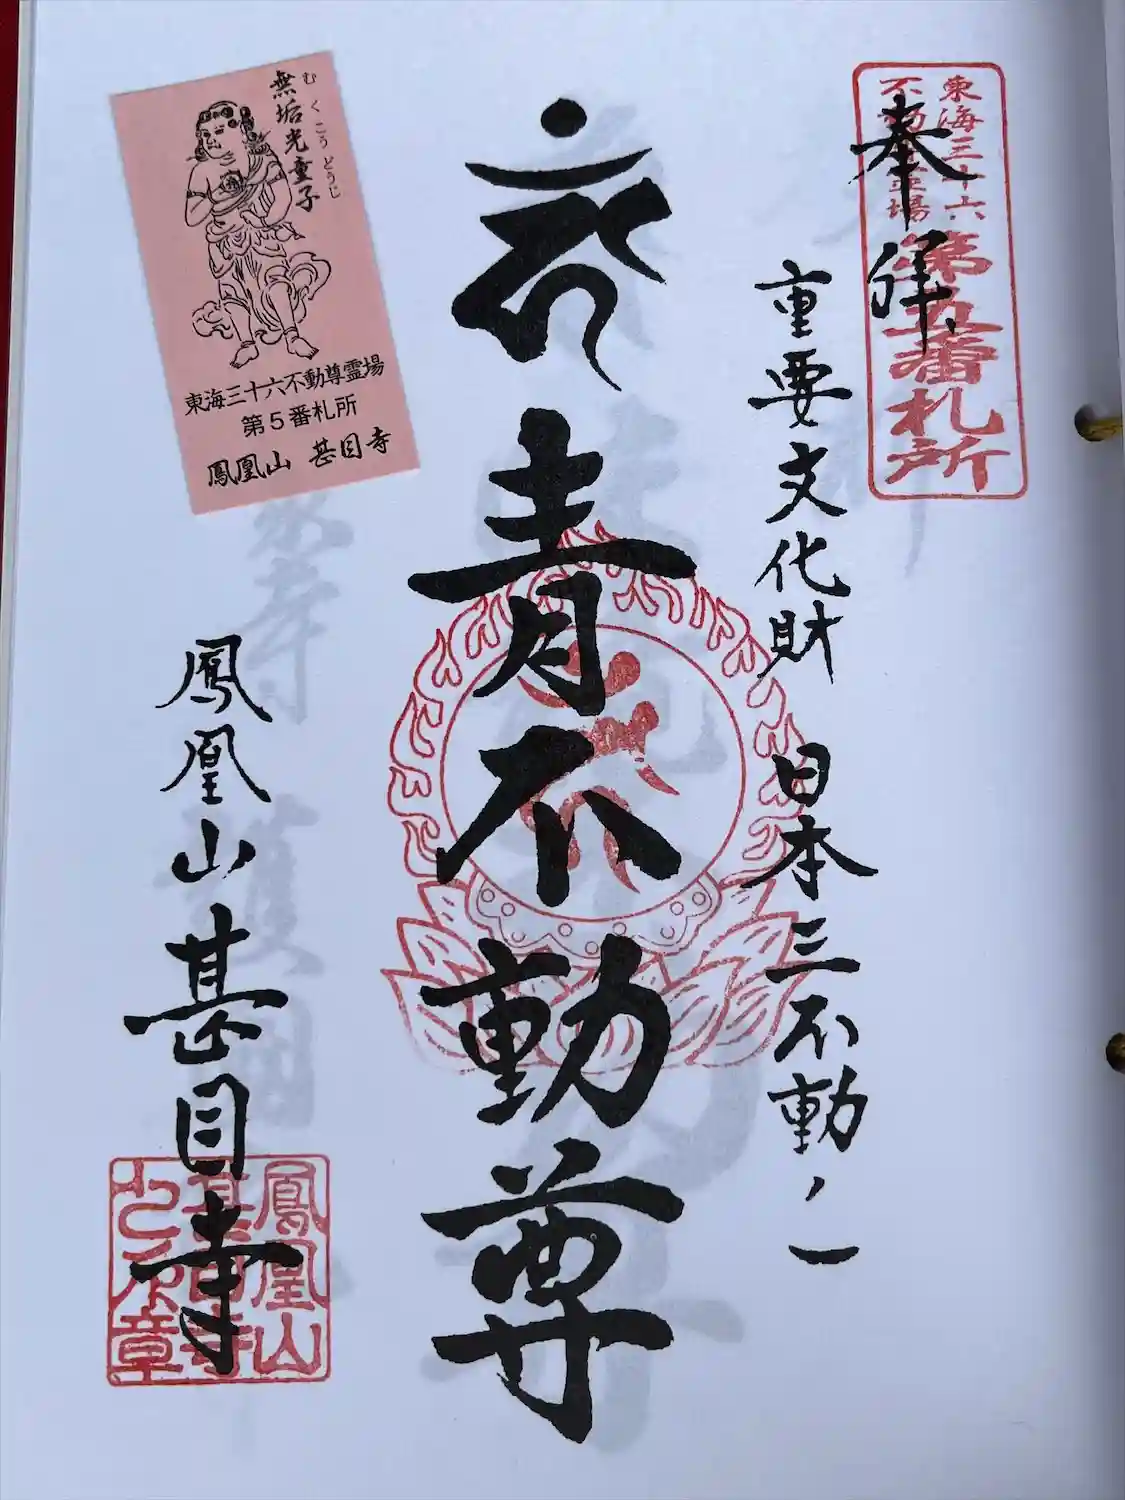 東海三十六
不動尊霊場
第五番札所
奉拝
重要文化財 日本三不動ノ一
青不動尊
鳳凰山甚目寺
鳳凰山
甚目寺
之印章
無垢光童子
むくこうどうじ
東海三十六不動尊霊場
第5番札所
鳳凰山 甚目寺